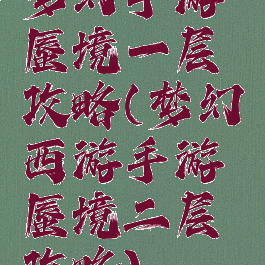 梦幻手游
蜃境一层
攻略(梦幻
西游手游
蜃境二层
攻略)